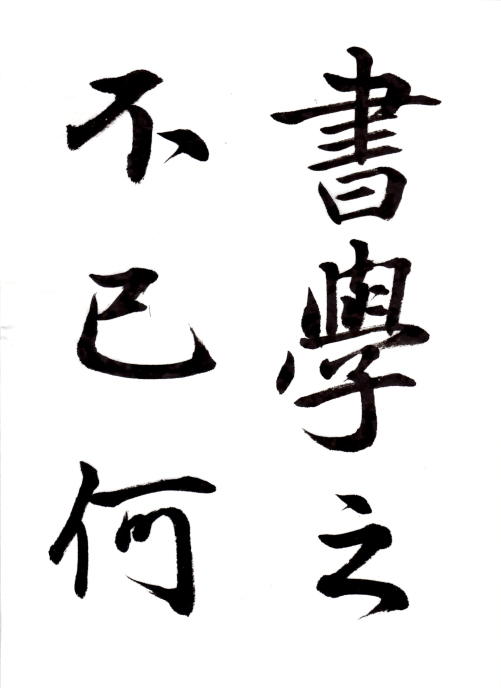 書學之
不已何